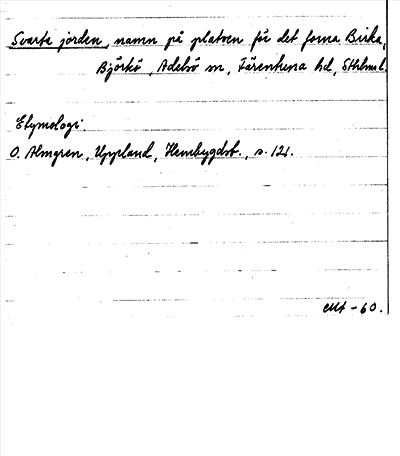 Svarta jorden, namn på platsen för det forna Birka,
Björkö, Adelsö sn, Färentuna hd, Sthlms l.
Etymologi.
O. Almgren, Uppland, Hembygdsb., s. 121.
-60.